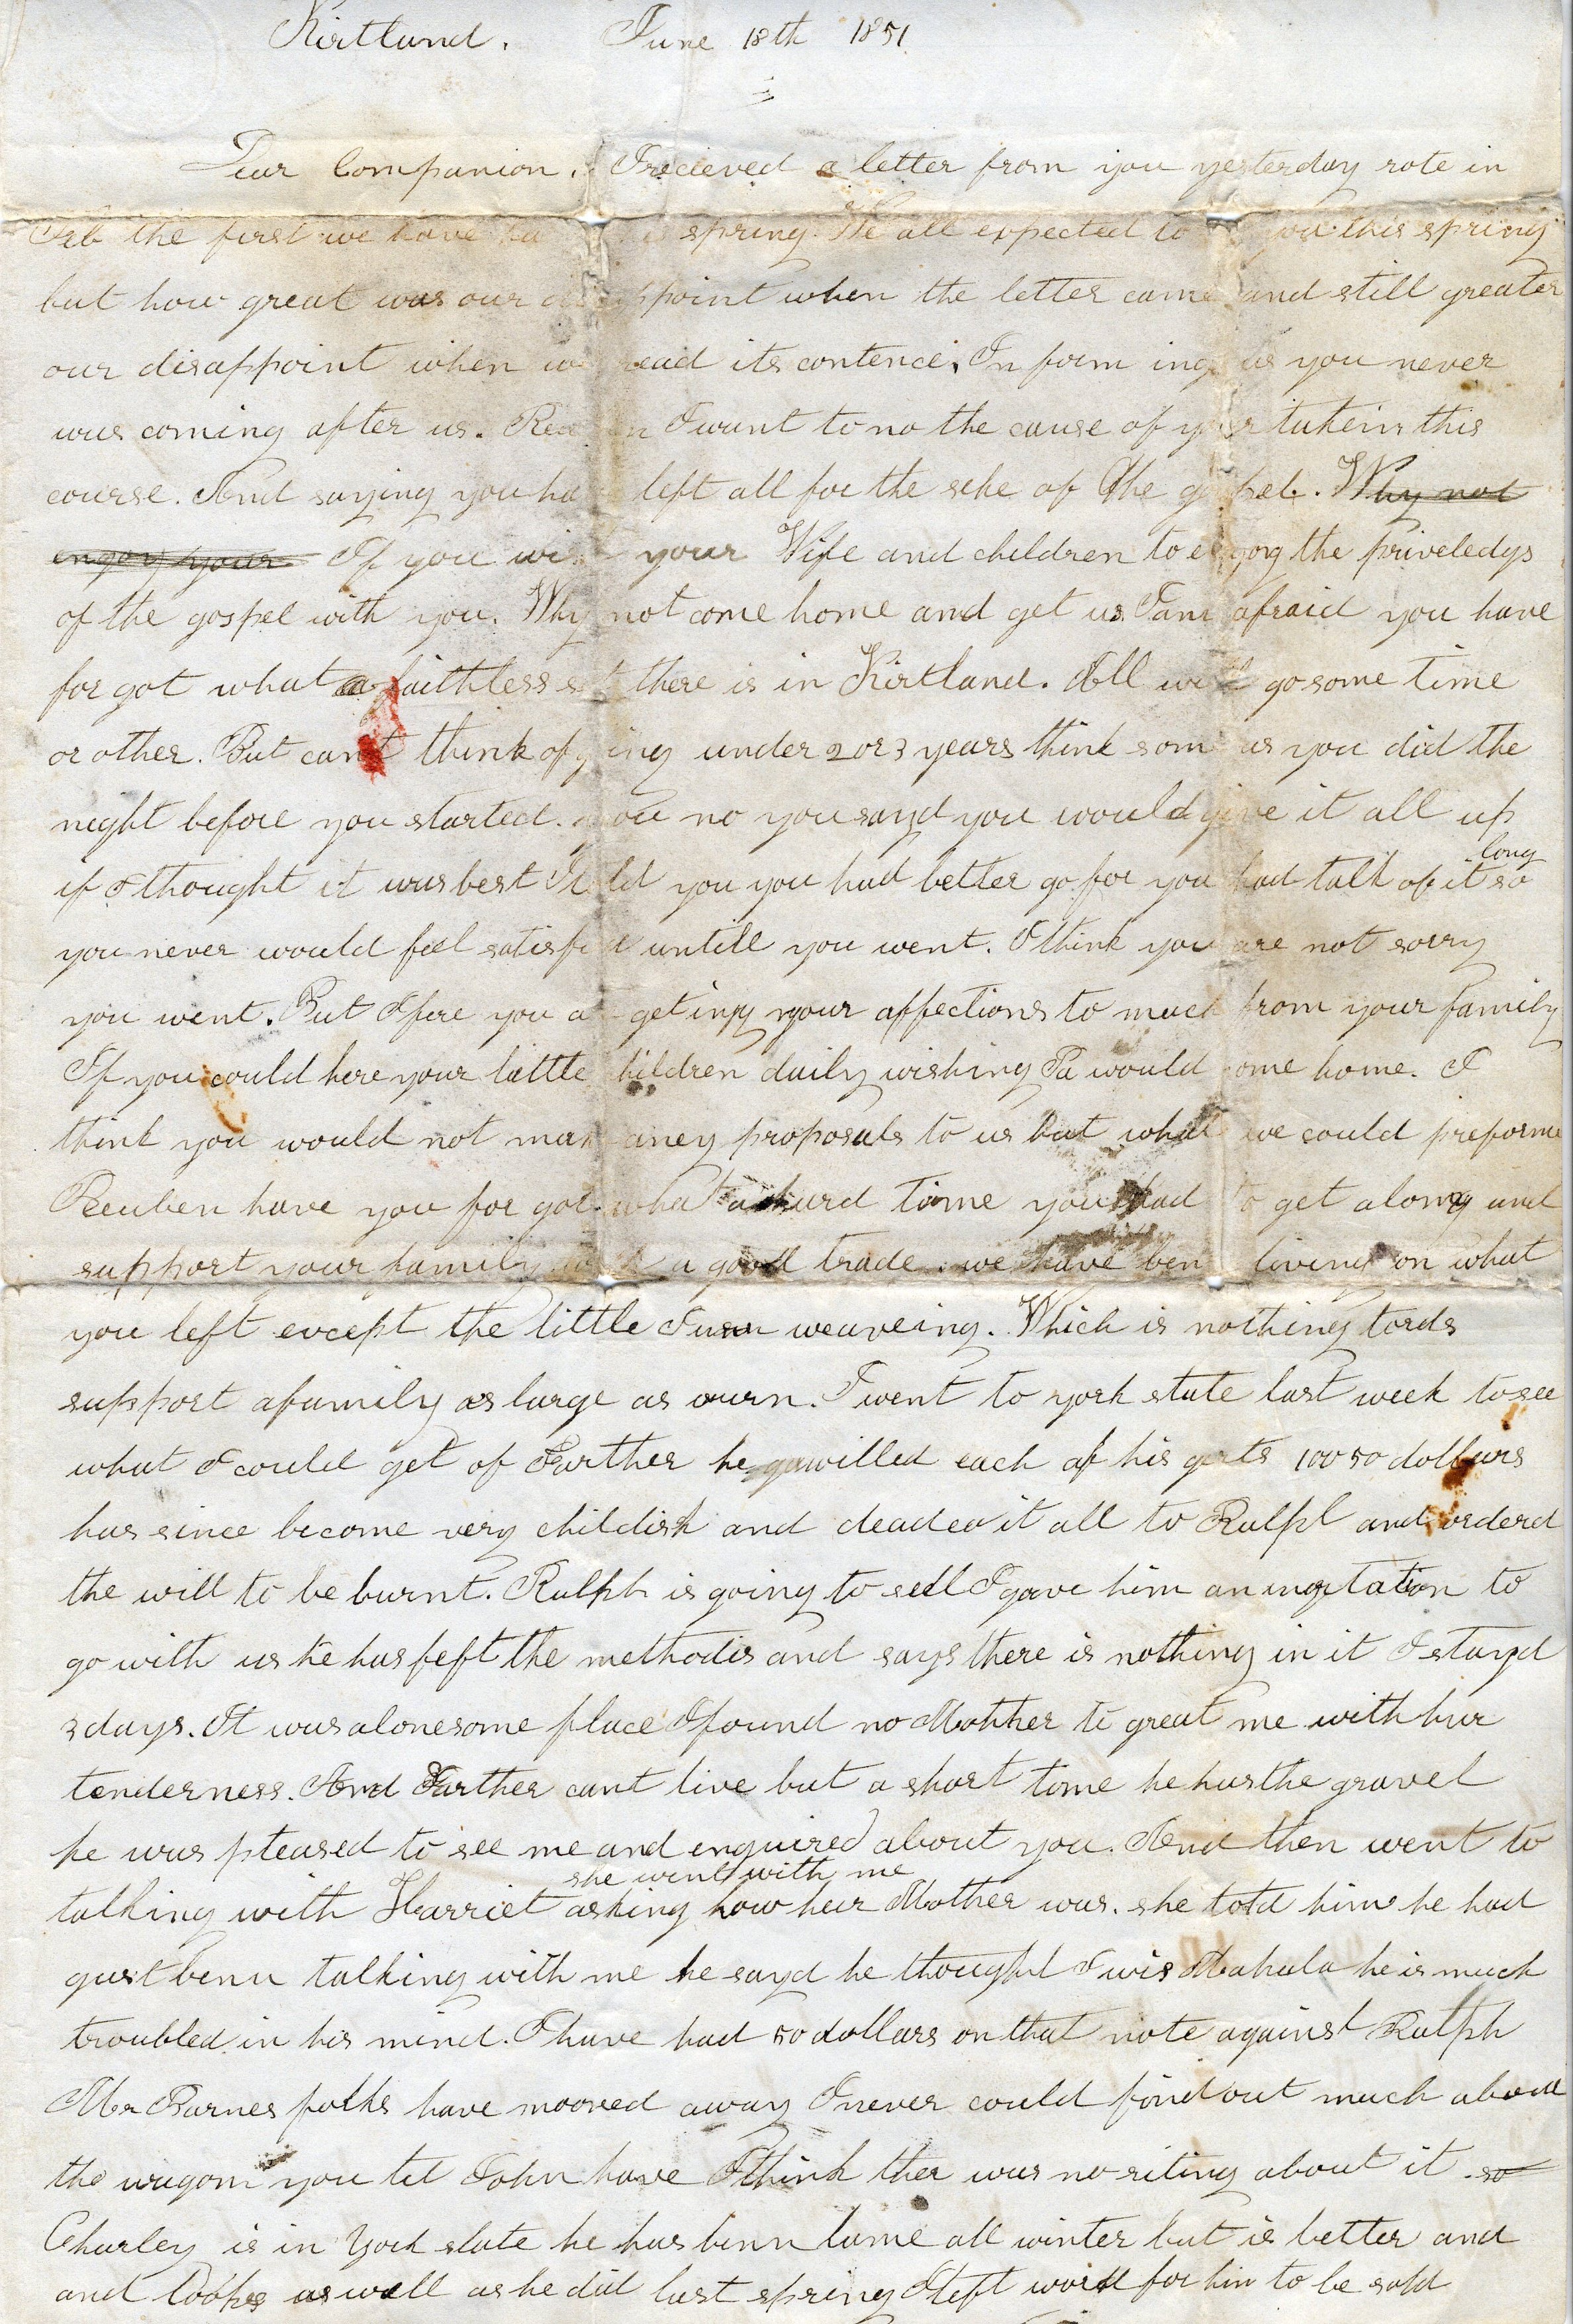 Kirtland. June 18th 1851
Dear Companion. I recieved a letter from you yesterday rote in
Feb the first we have spring. We all expected to you this spring
but how great was our disappoint when the letter came and still greater
our disappoint when we read its contence. In form ing us you never
was coming after us. Reuben I want to no the cause of your takein this
course. And saying you had left all for the seke of the gospel. Why not
engoy your If you wish your Wife and children to engoy the priveledgs
of the gospel with you. Why not come home and get us. I am afraid you have
for got what a faithless set there is in Kirtland. All will go some time
or other. But cant think of going under 2 or 3 years think some as you did the
night before you started. you no you sayd you would give it all up
if I thought it was best I told you you had better go for you had talk of it so
long
you never would feel satisfied untill you went. I think you are not sorry
you went. But I fere you are getingg your affections to much from your family
If you could here your little children daily wishing Pa would come home. I
think you would not make aney proposals to us but what we could preforme
Reuben have you for got what a hard time you had to get along and
support your family with a good trade. we have ben living on what
you left except the little I weaveing. Which is nothing tords
support a family as large as ourn. I went to york state last week to see
what I could get of Farther he willed each of his gerls 100 50 dollars
has since become very childish and deaded it all to Ralph and orderd
the will to be burnt. Ralph is going to sell I gave him an invitation to
go with us he has left the methodis and says there is nothing in it I stayd
3 days. It was a lonesome place I found no Mother to great me with hur
tenderness. And Farther cant live but a short time he has the gravel
he was pleased to see me and enquired about you. And then went to
she went with me
talking with Harriet asking how heur Mother was. she told him he had
gust benn talking with me he sayd he thought I wis Mahala he is much
troubled in his mind. I have had 50 dollars on that note against Ralph
Mr Barnes folks have mooved away I never could find out much about
the wagon you let John have I think ther was no riting about it. so
Charley is in York state he has benn lame all winter but is better and
and lookes as well as he did last spring I left word for him to be sold